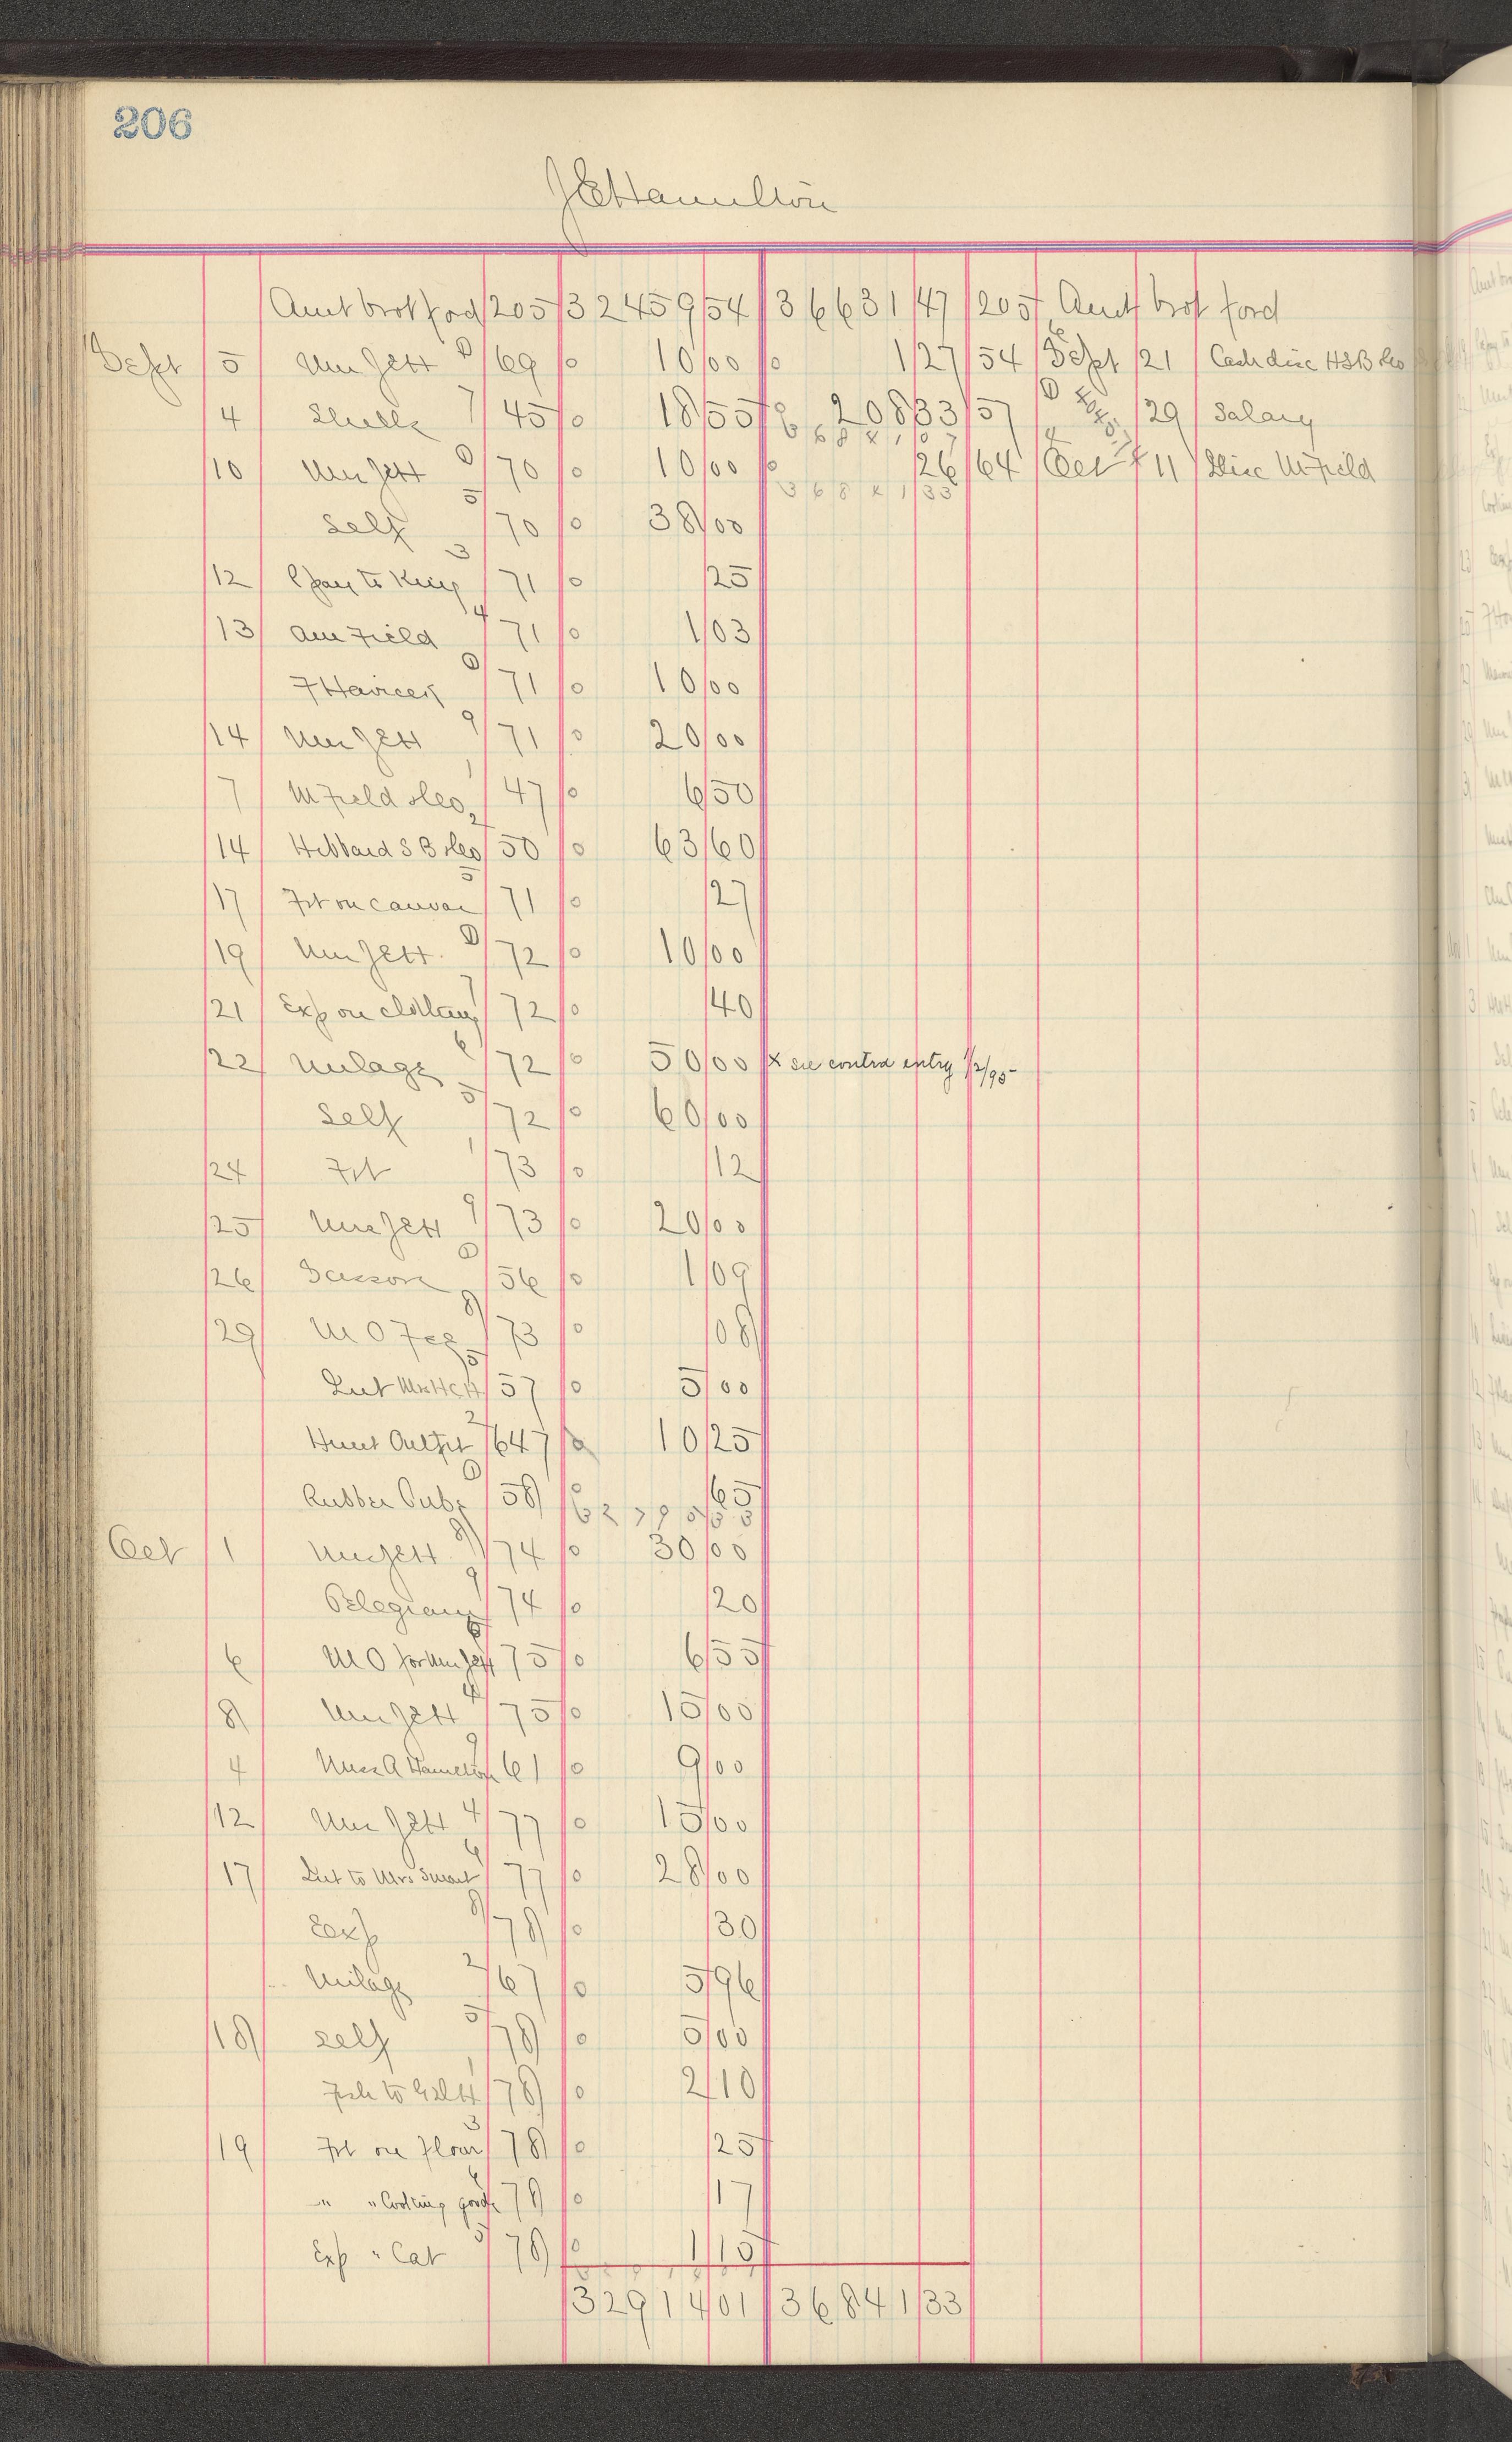 206
J E Hamilton
Amt brot ford 205 32459 54 36631 47 205 Amt brot ford
Sept 5 Wm Jett 69 10 00 1 27 54 Sept 21 Cash disc HSB &Co
4 45 18 55 208 33 57 29 Salary
10 Wm Jett 70 10 00 26 64 Oct 11 Disc M Field
36841 33
Self 70 38 00
12 71 25
13 Am Field 71 1 03
71 10 00
14 Wm Jett 71 20 00
7 M Field &Co 47 6 50
14 Hibbard S B &Co 50 63 60
17 Frt on canvas 71 27
19 Wm Jett 72 10 00
21 Exp on clothing 72 40
22 Milage 72 50 00 X see contra entry 1/2/95
Self 72 60 00
24 Frt 73 12
25 Wm Jett 73 20 00
26 Scissors 56 1 09
29 M O Fee 73 08
57 5 00
Hunt Outfit 647 10 25
Rubber Tube 58 65
Oct 1 Wm Jett 74 30 00
Telegram 74 20
6 M O for Wm Jett 75 6 55
8 Wm Jett 75 15 00
4 Miss A Hamilton 61 9 00
12 Wm Jett 77 15 00
17 to Mrs Smart 77 28 00
Exp 78 30
Milage 67 5 96
18 Self 78 5 00
78 2 10
19 Frt on flour 78 25
" " Cooking goods 78 17
Exp " Cat 78 1 15
32914 01 36841 33